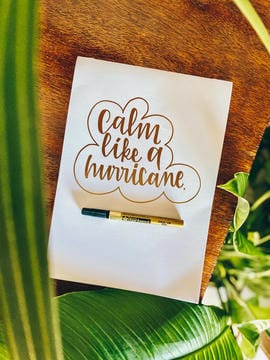 calm
like a
hurricane.